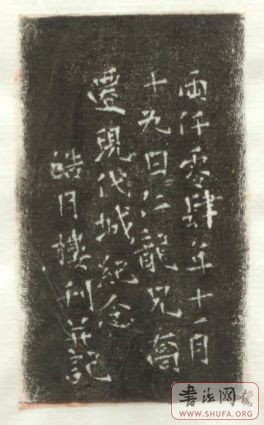 兩仟零肆年十一月
十九日仁龍兄喬
遷現代城紀念
皓月樓刊并記
书法网
WWW.SHUFA.ORG